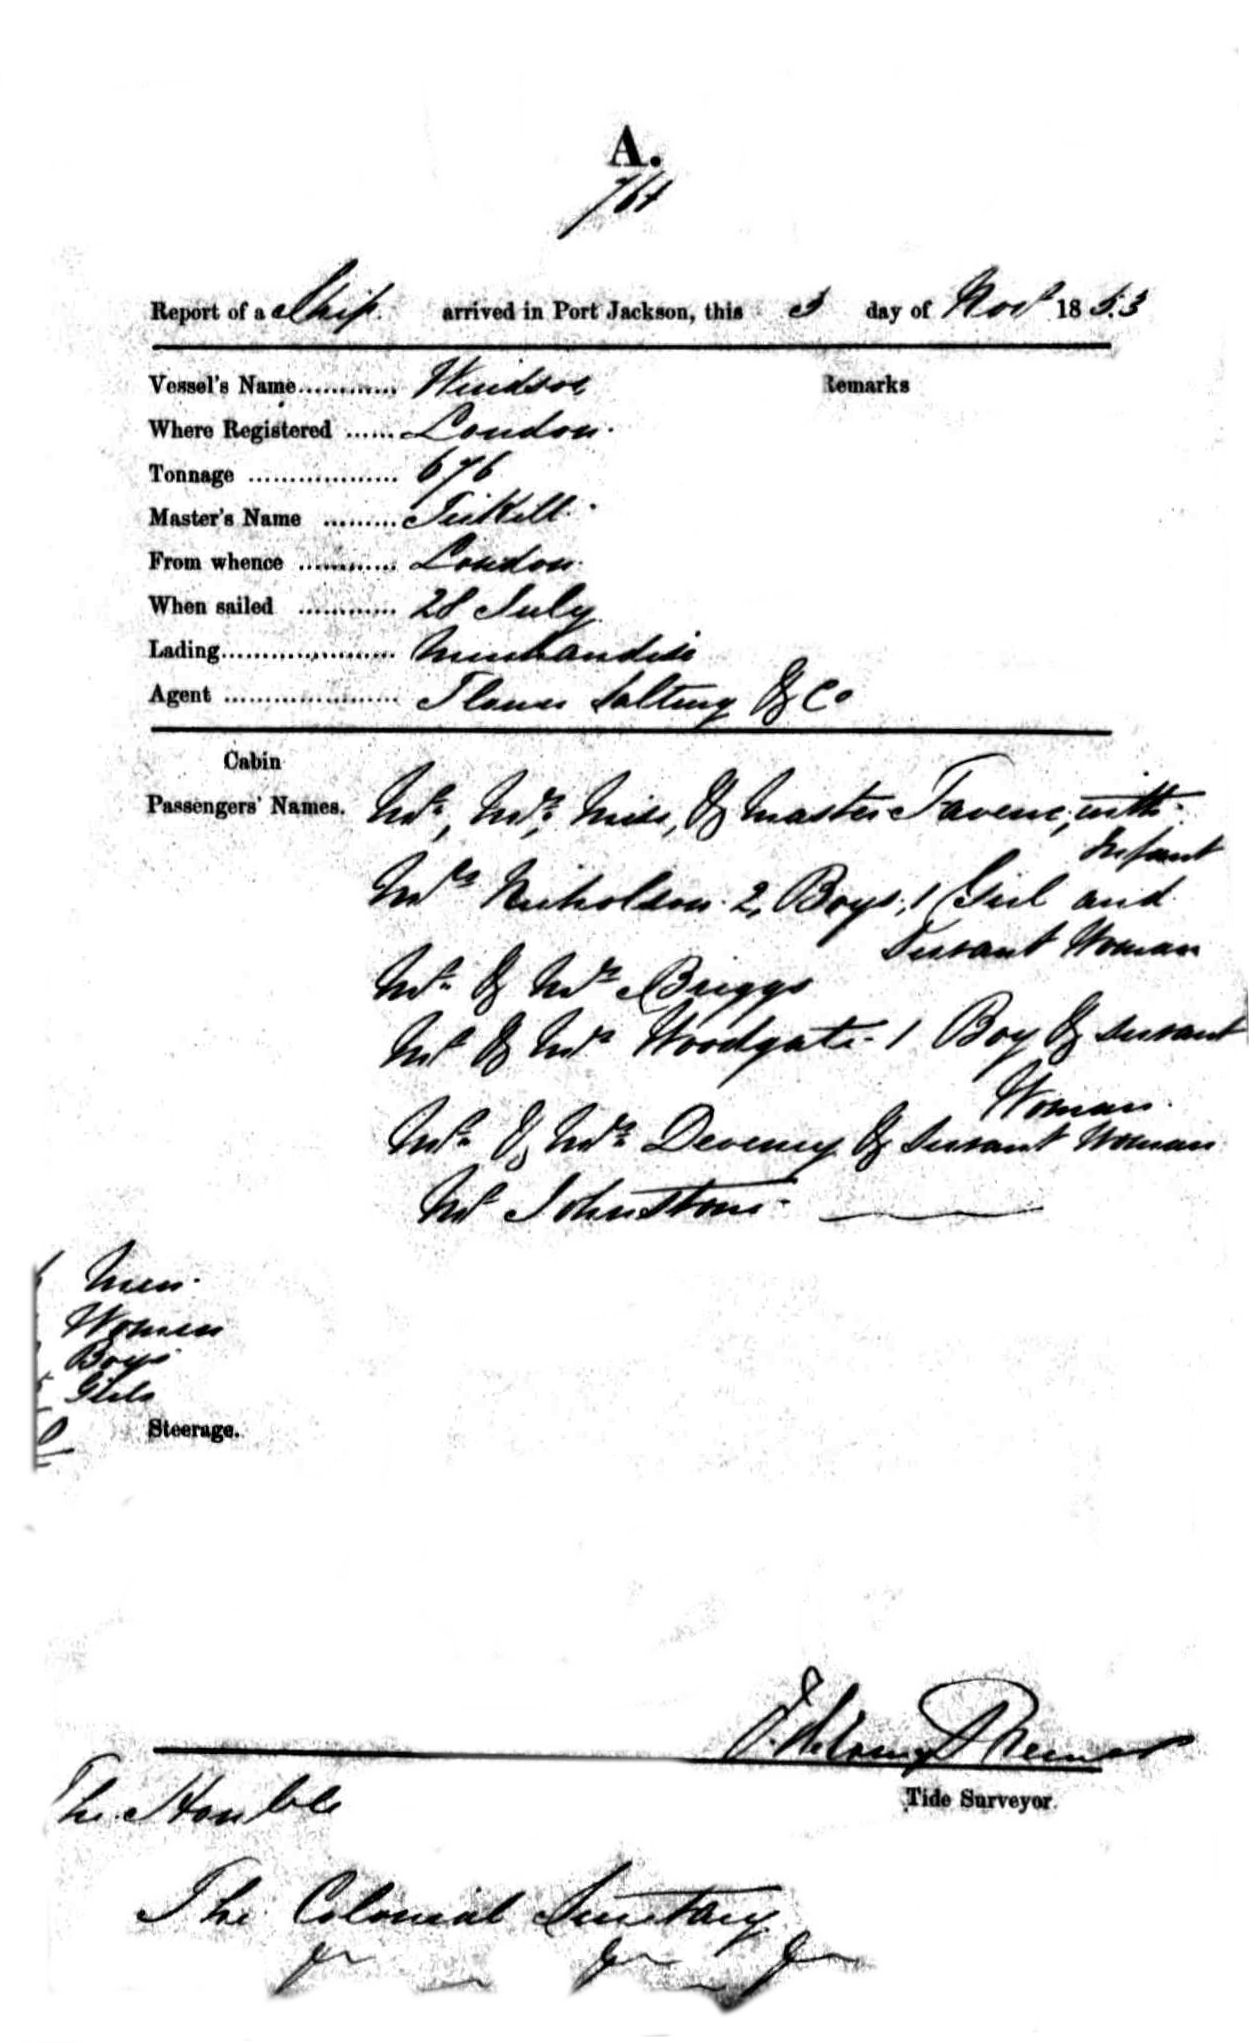 A.
764
Report of a Ship. arrived in Port Jackson, this 3 day of Novr 1853
Vessel's Name............ Windsor Remarks
Where Registered ...... London.
Tonnage .................. 676
Master's Name ......... Tickell.
From whence ............ London.
When sailed ............ 28 July.
Lading..................... Merchandise
Agent ..................... Flower Salting & Co
Cabin
Passengers' Names. Mr., Mrs., Miss, & Master Tavene, with
Infant
Mrs Nicholson. 2, Boys, 1 Girl and
Servant Woman
Mr. & Mrs. Briggs
Mr & Mrs Woodgate. 1 Boy & Servant
Woman.
Mr. & Mrs. Deveney & Servant Woman
Mr Johnstone.
Men.
Women
Boys
Girls
Steerage.
Tide Surveyor.
The Honble
The Colonial Secretary